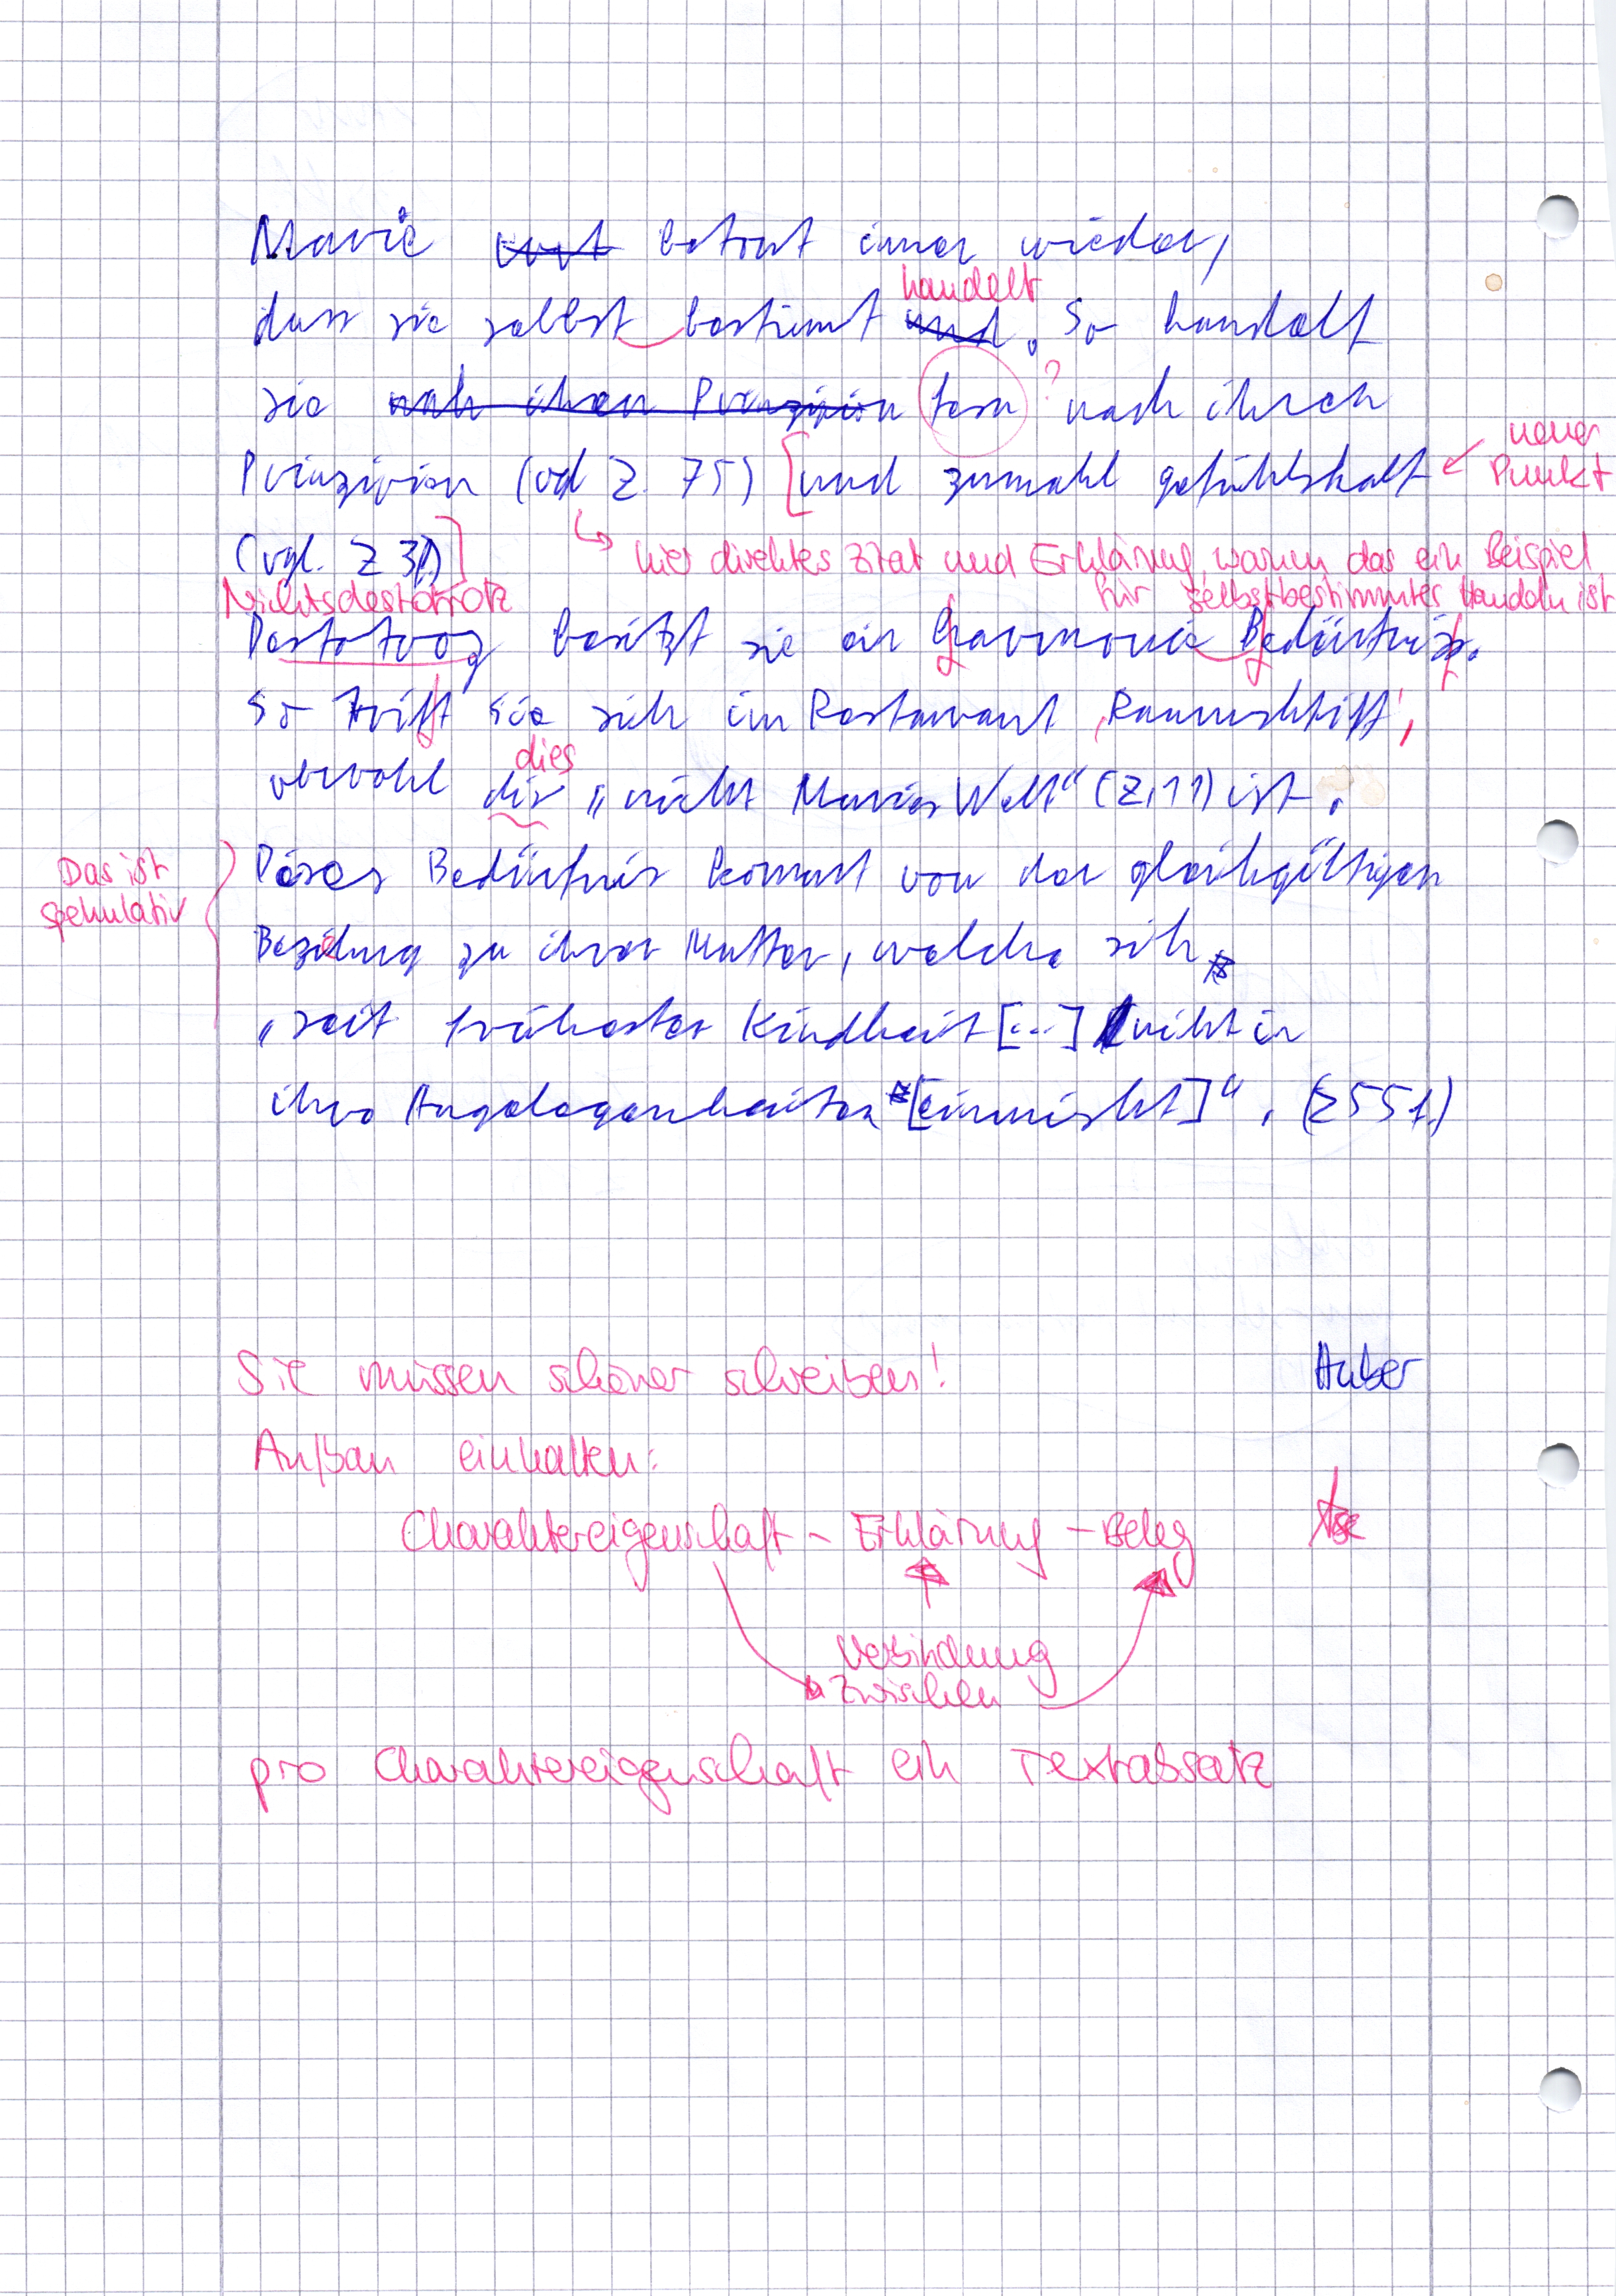 Marie betont immer wieder,
handelt
dass sie selbst bestimmt und. So handelt
sie nach ihren Prinzipien nach ihren
neuer
Prinzipien (vgl Z. 75) [und zumahl gefühlshaft
Punkt
(vgl. Z 31)]
hier direktes Zitat und Erklärung, warum das ein Beispiel
für selbstbestimmtes Handeln ist
Nichtsdestotrotz
Destotrotz besitzt sie ein Harmonie Bedürfnis.
So trift sie sich im Restaurant 'Raumschiff',
dies
obwohl die „nicht Maries Welt“ (Z. 11) ist.
Das ist
spekulativ
Dieses Bedürfnis kommt von der gleichgültigen
Beziehung zu ihrer Mutter, welche sich
„seit frühester Kindheit [...] nicht in
ihre Angelegenheiten [einmischt]“. (Z 55 f.)
Sie müssen schöner schreiben!
Aufbau einhalten:
Charaktereigenschaft - Erklärung - Beleg
Verbindung
zwischen
pro Charaktereigenschaft ein Textabsatz